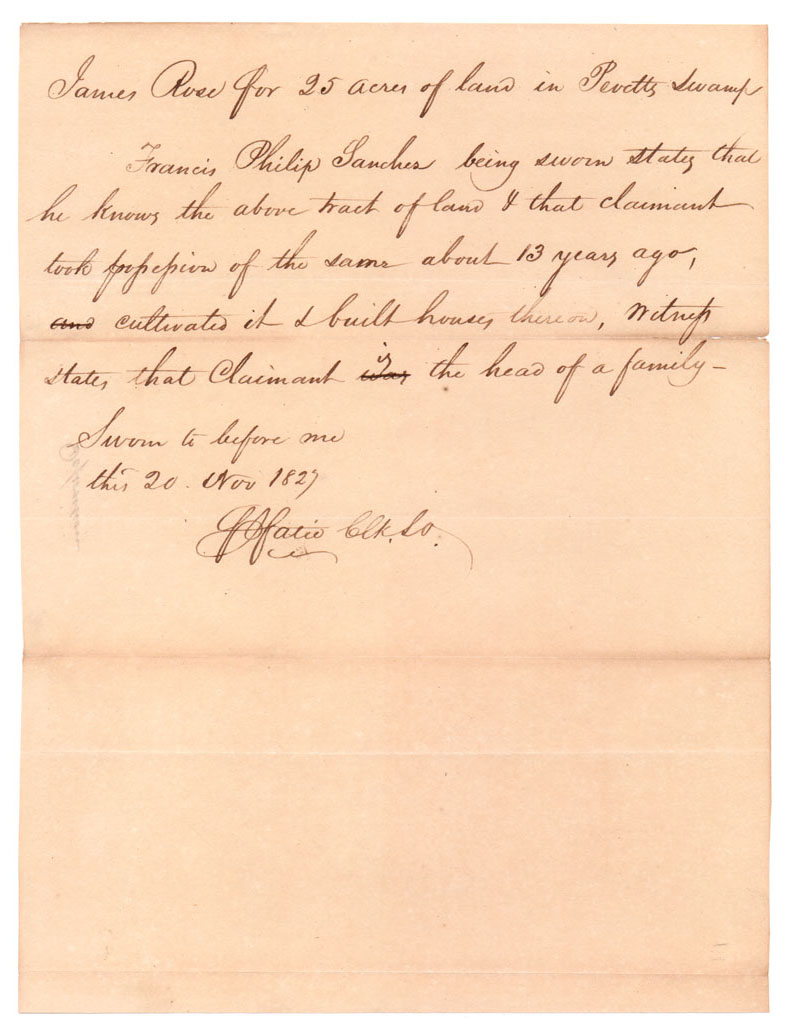 James Rose for 25 acres of land in Pevetts Swamp
Francis Philip Sanchez being sworn states that
he knows the above tract of land & that claimant
took possession of the same about 13 years ago,
and cultivated it & built houses thereon, Witness
states that Claimant was is the head of a family -
Sworn to before me
this 20. Nov 1827
Fatio Clk.